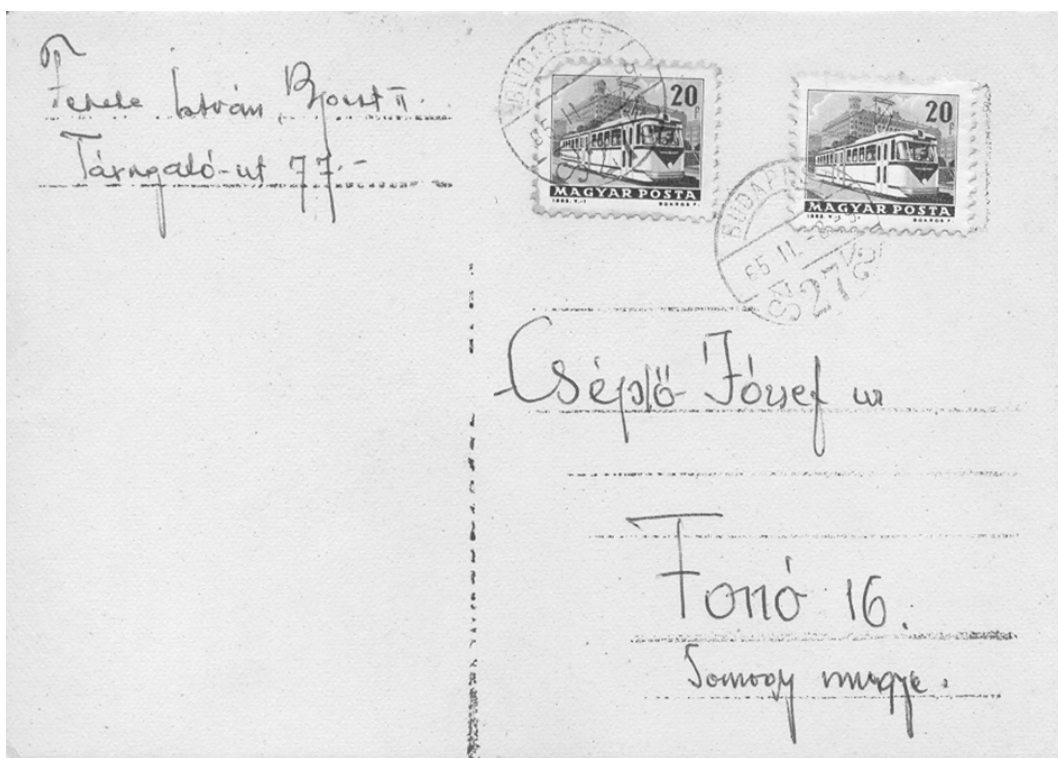 Fekete István, Bpest II.
Tárogató-ut 77.-
BUDAPEST
65 II
20 f
MAGYAR POSTA
1963. V.-1
20 f
MAGYAR POSTA
1963. V.-1
BUDAPE
65 II.-8
27
Cséplő József ur
Fonó 16.
Somogy megye.